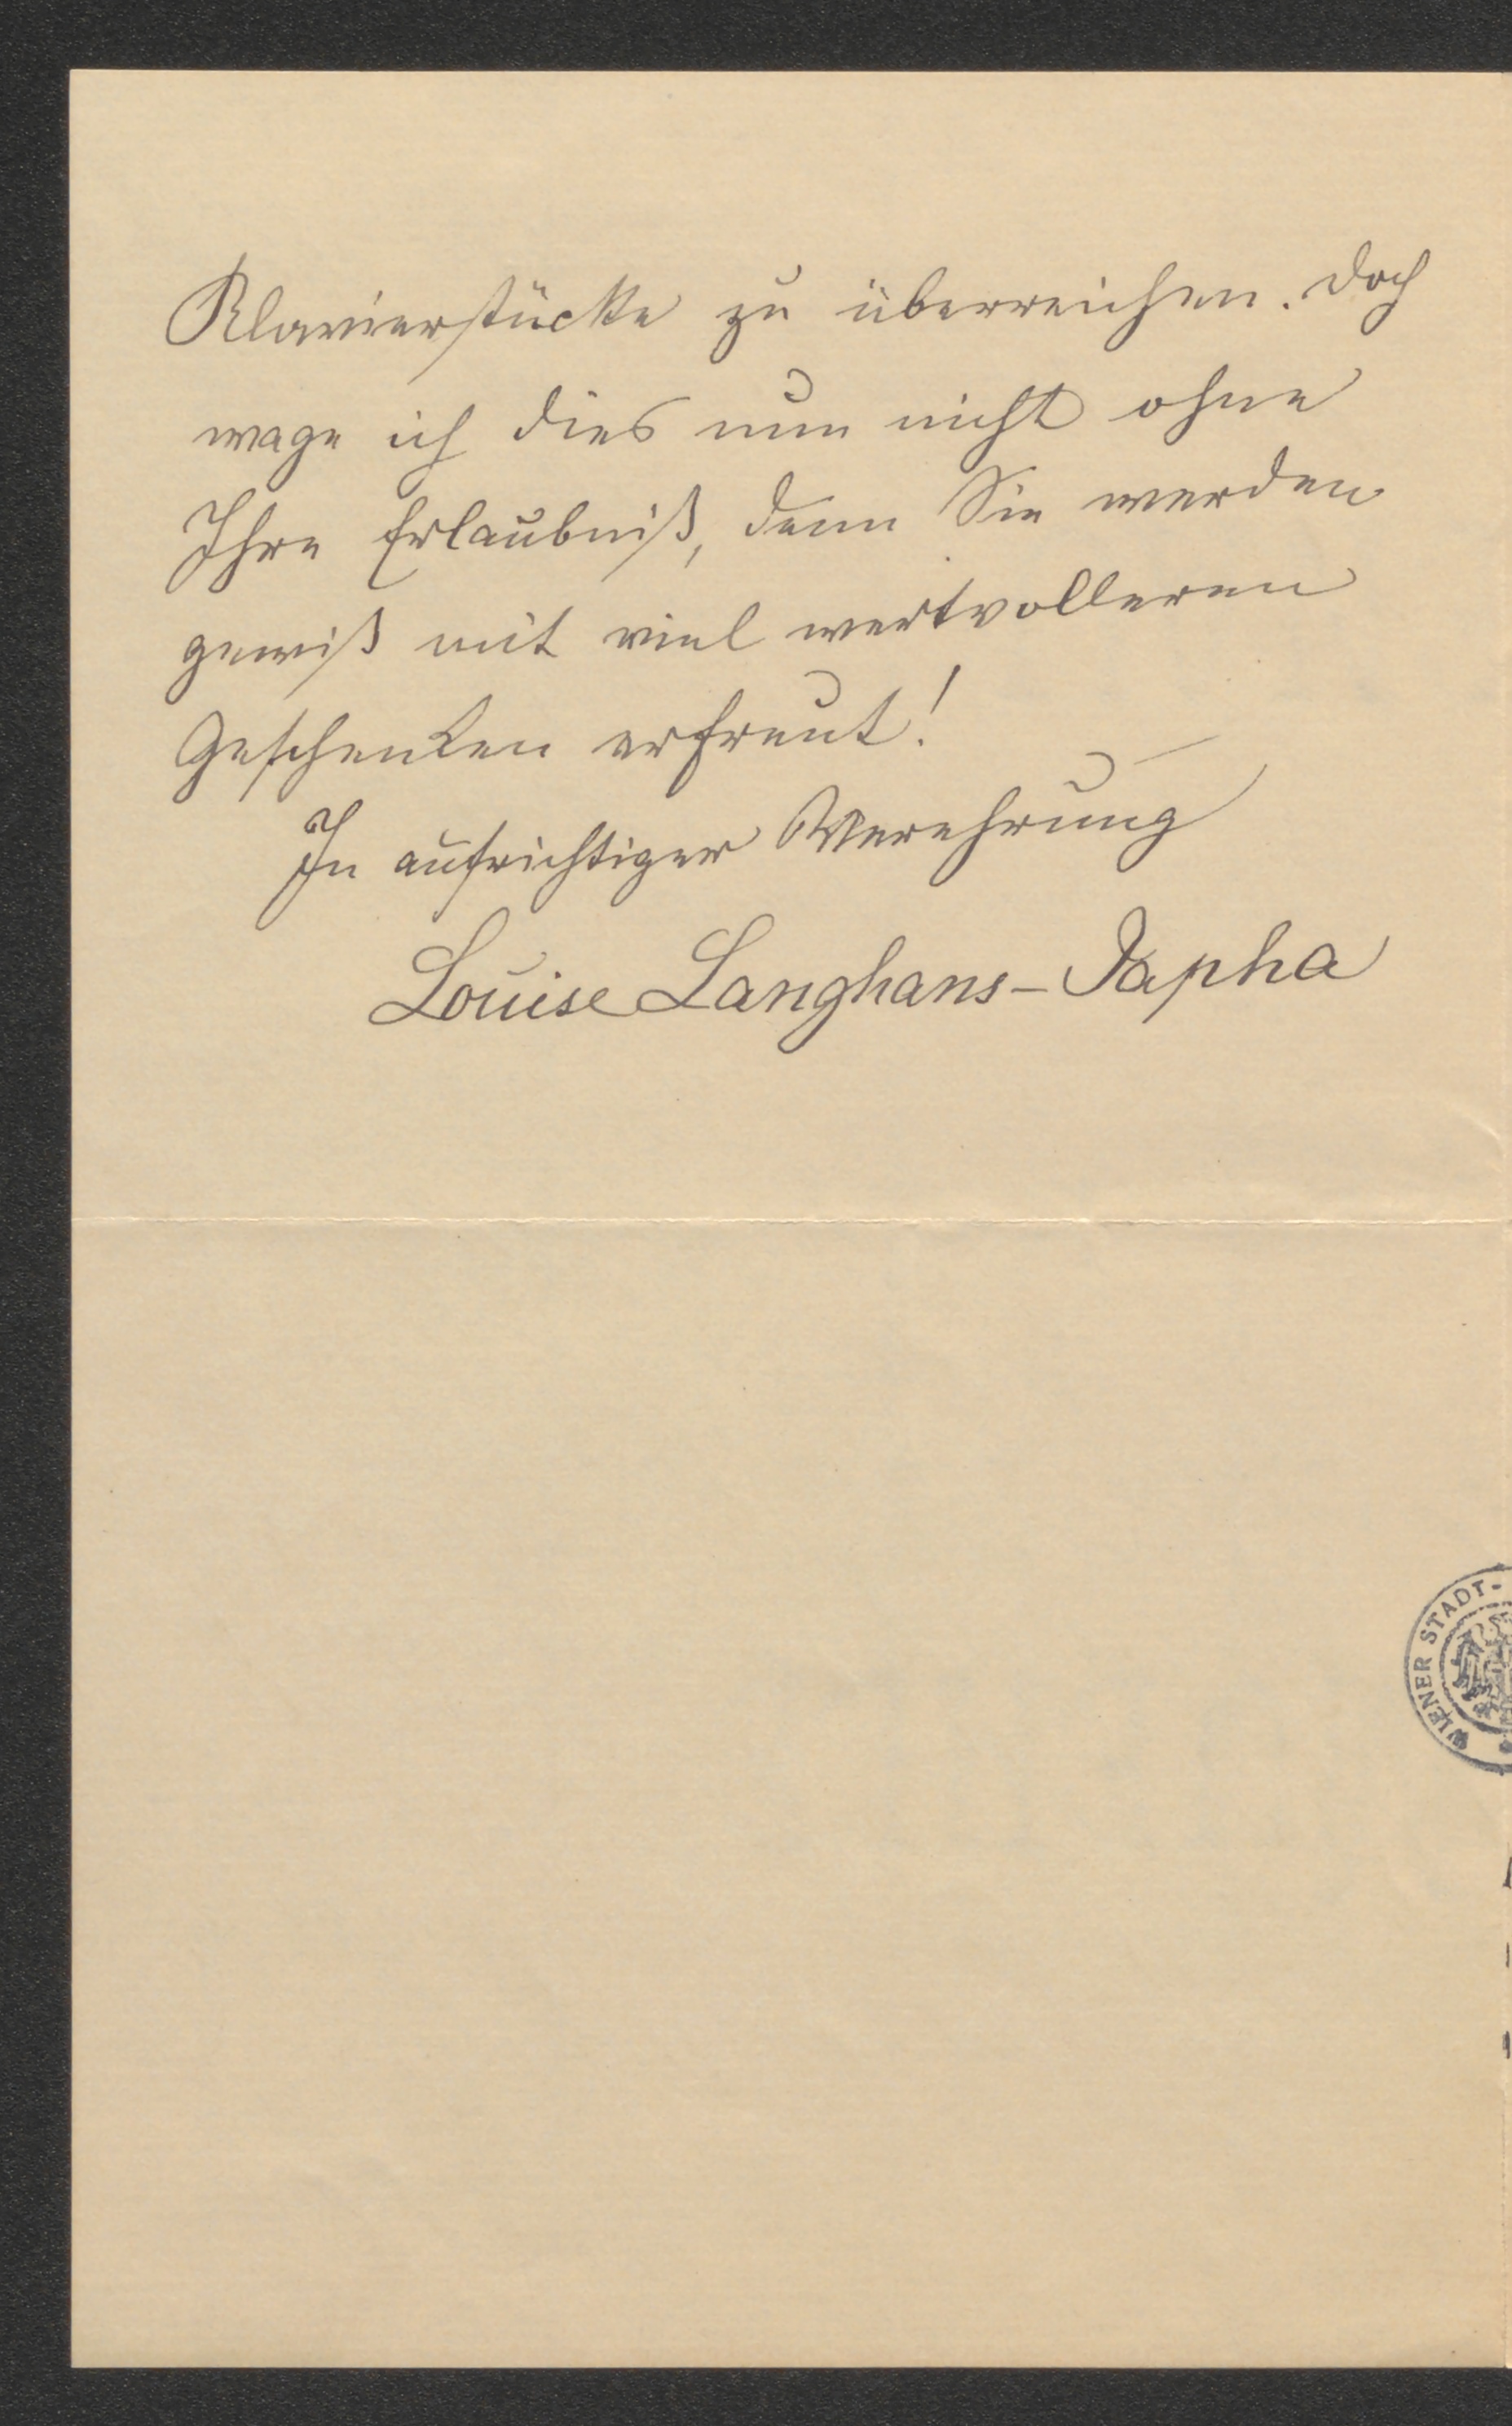 Klavierstücke zu überreichen. Doch
wage ich dies nun nicht ohne
Ihre Erlaubniß, denn Sie werden
gewiß mit viel wertvolleren
Geschenken erfreut! –
In aufrichtiger Verehrung
Louise Langhans-Japha
WIENER STADT-